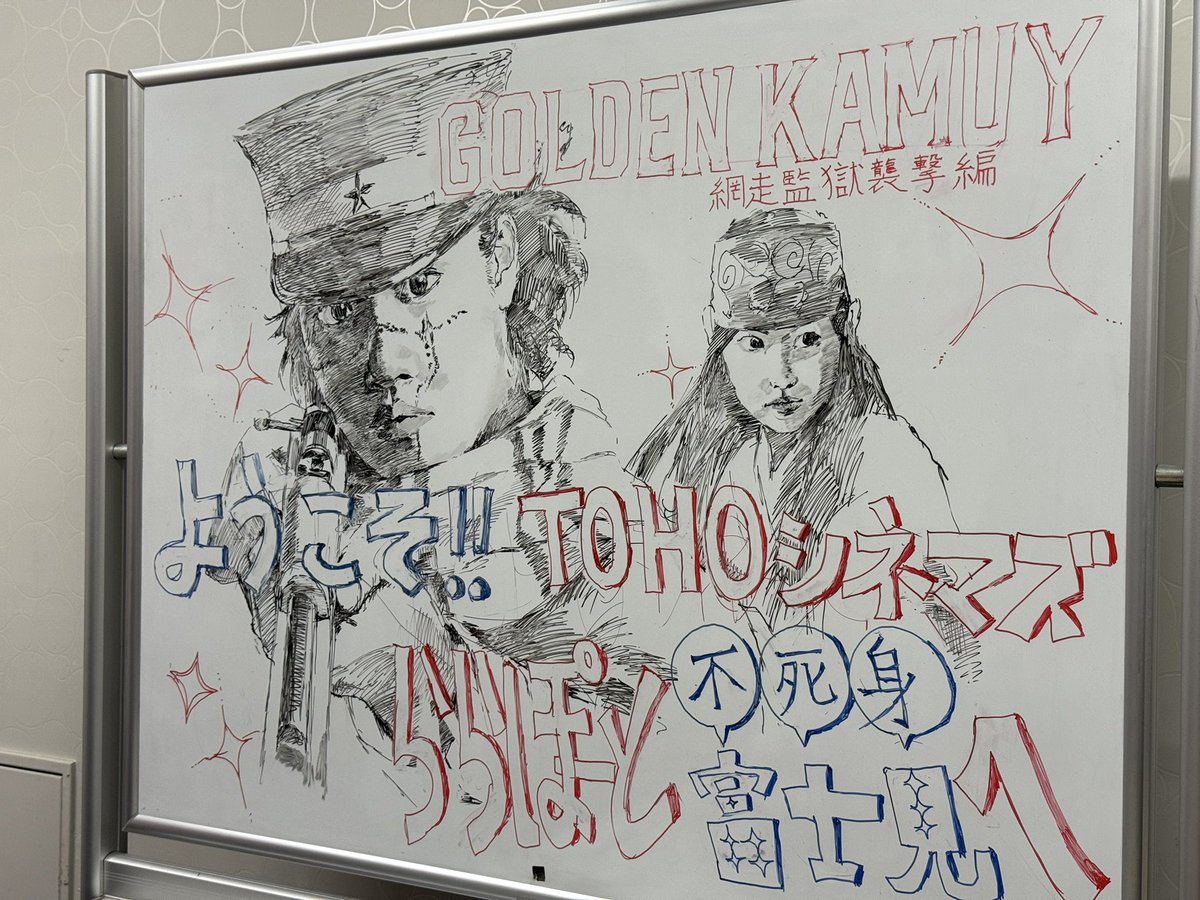 GOLDEN KAMUY
網走監獄襲撃編
ようこそ!! TOHOシネマズ
ららぽーと 不死身
富士見へ